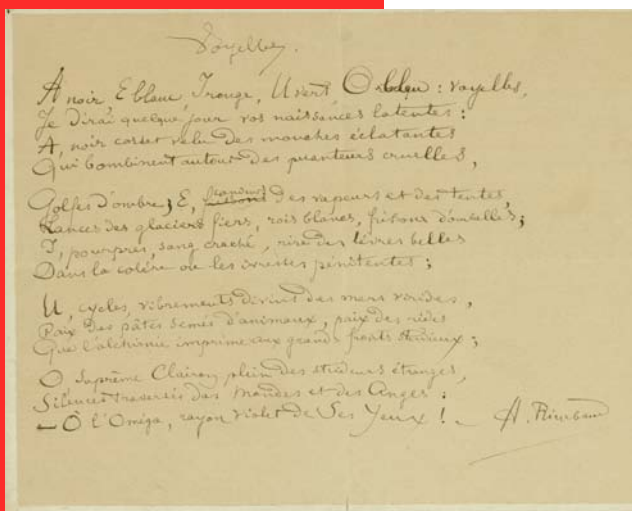 Voyelles.
A noir, E blanc, I rouge, U vert, O bleu : voyelles,
Je dirai quelque jour vos naissances latentes :
A, noir corset velu des mouches éclatantes
Qui bombinent autour des puanteurs cruelles,
Golfes d'ombre ; E, candeurs des vapeurs et des tentes,
Lances des glaciers fiers, rois blancs, frissons d'ombelles ;
I, pourpres, sang craché, rire des lèvres belles
Dans la colère ou les ivresses pénitentes ;
U, cycles, vibrements divins des mers virides,
Paix des pâtis semés d'animaux, paix des rides
Que l'alchimie imprime aux grands fronts studieux ;
O, Suprême Clairon plein des strideurs étranges,
Silences traversés des Mondes et des Anges :
— O l'Oméga, rayon violet de Ses Yeux ! —
A. Rimbaud